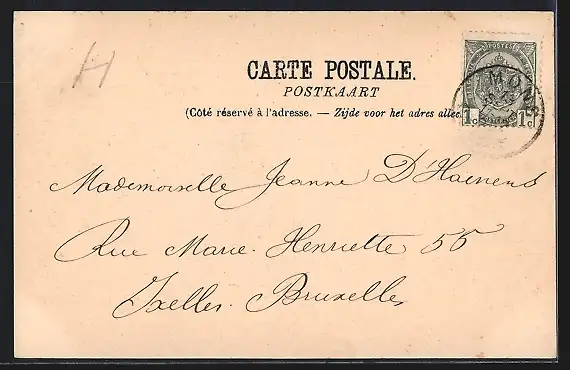 H
CARTE POSTALE.
POSTKAART
(Côté réservé à l'adresse. — Zijde voor het adres alleen
POSTES
MONS
1c 1c
Mademoiselle Jeanne D'Haenens
Rue Marie-Henriette 55
Ixelles-Bruxelles